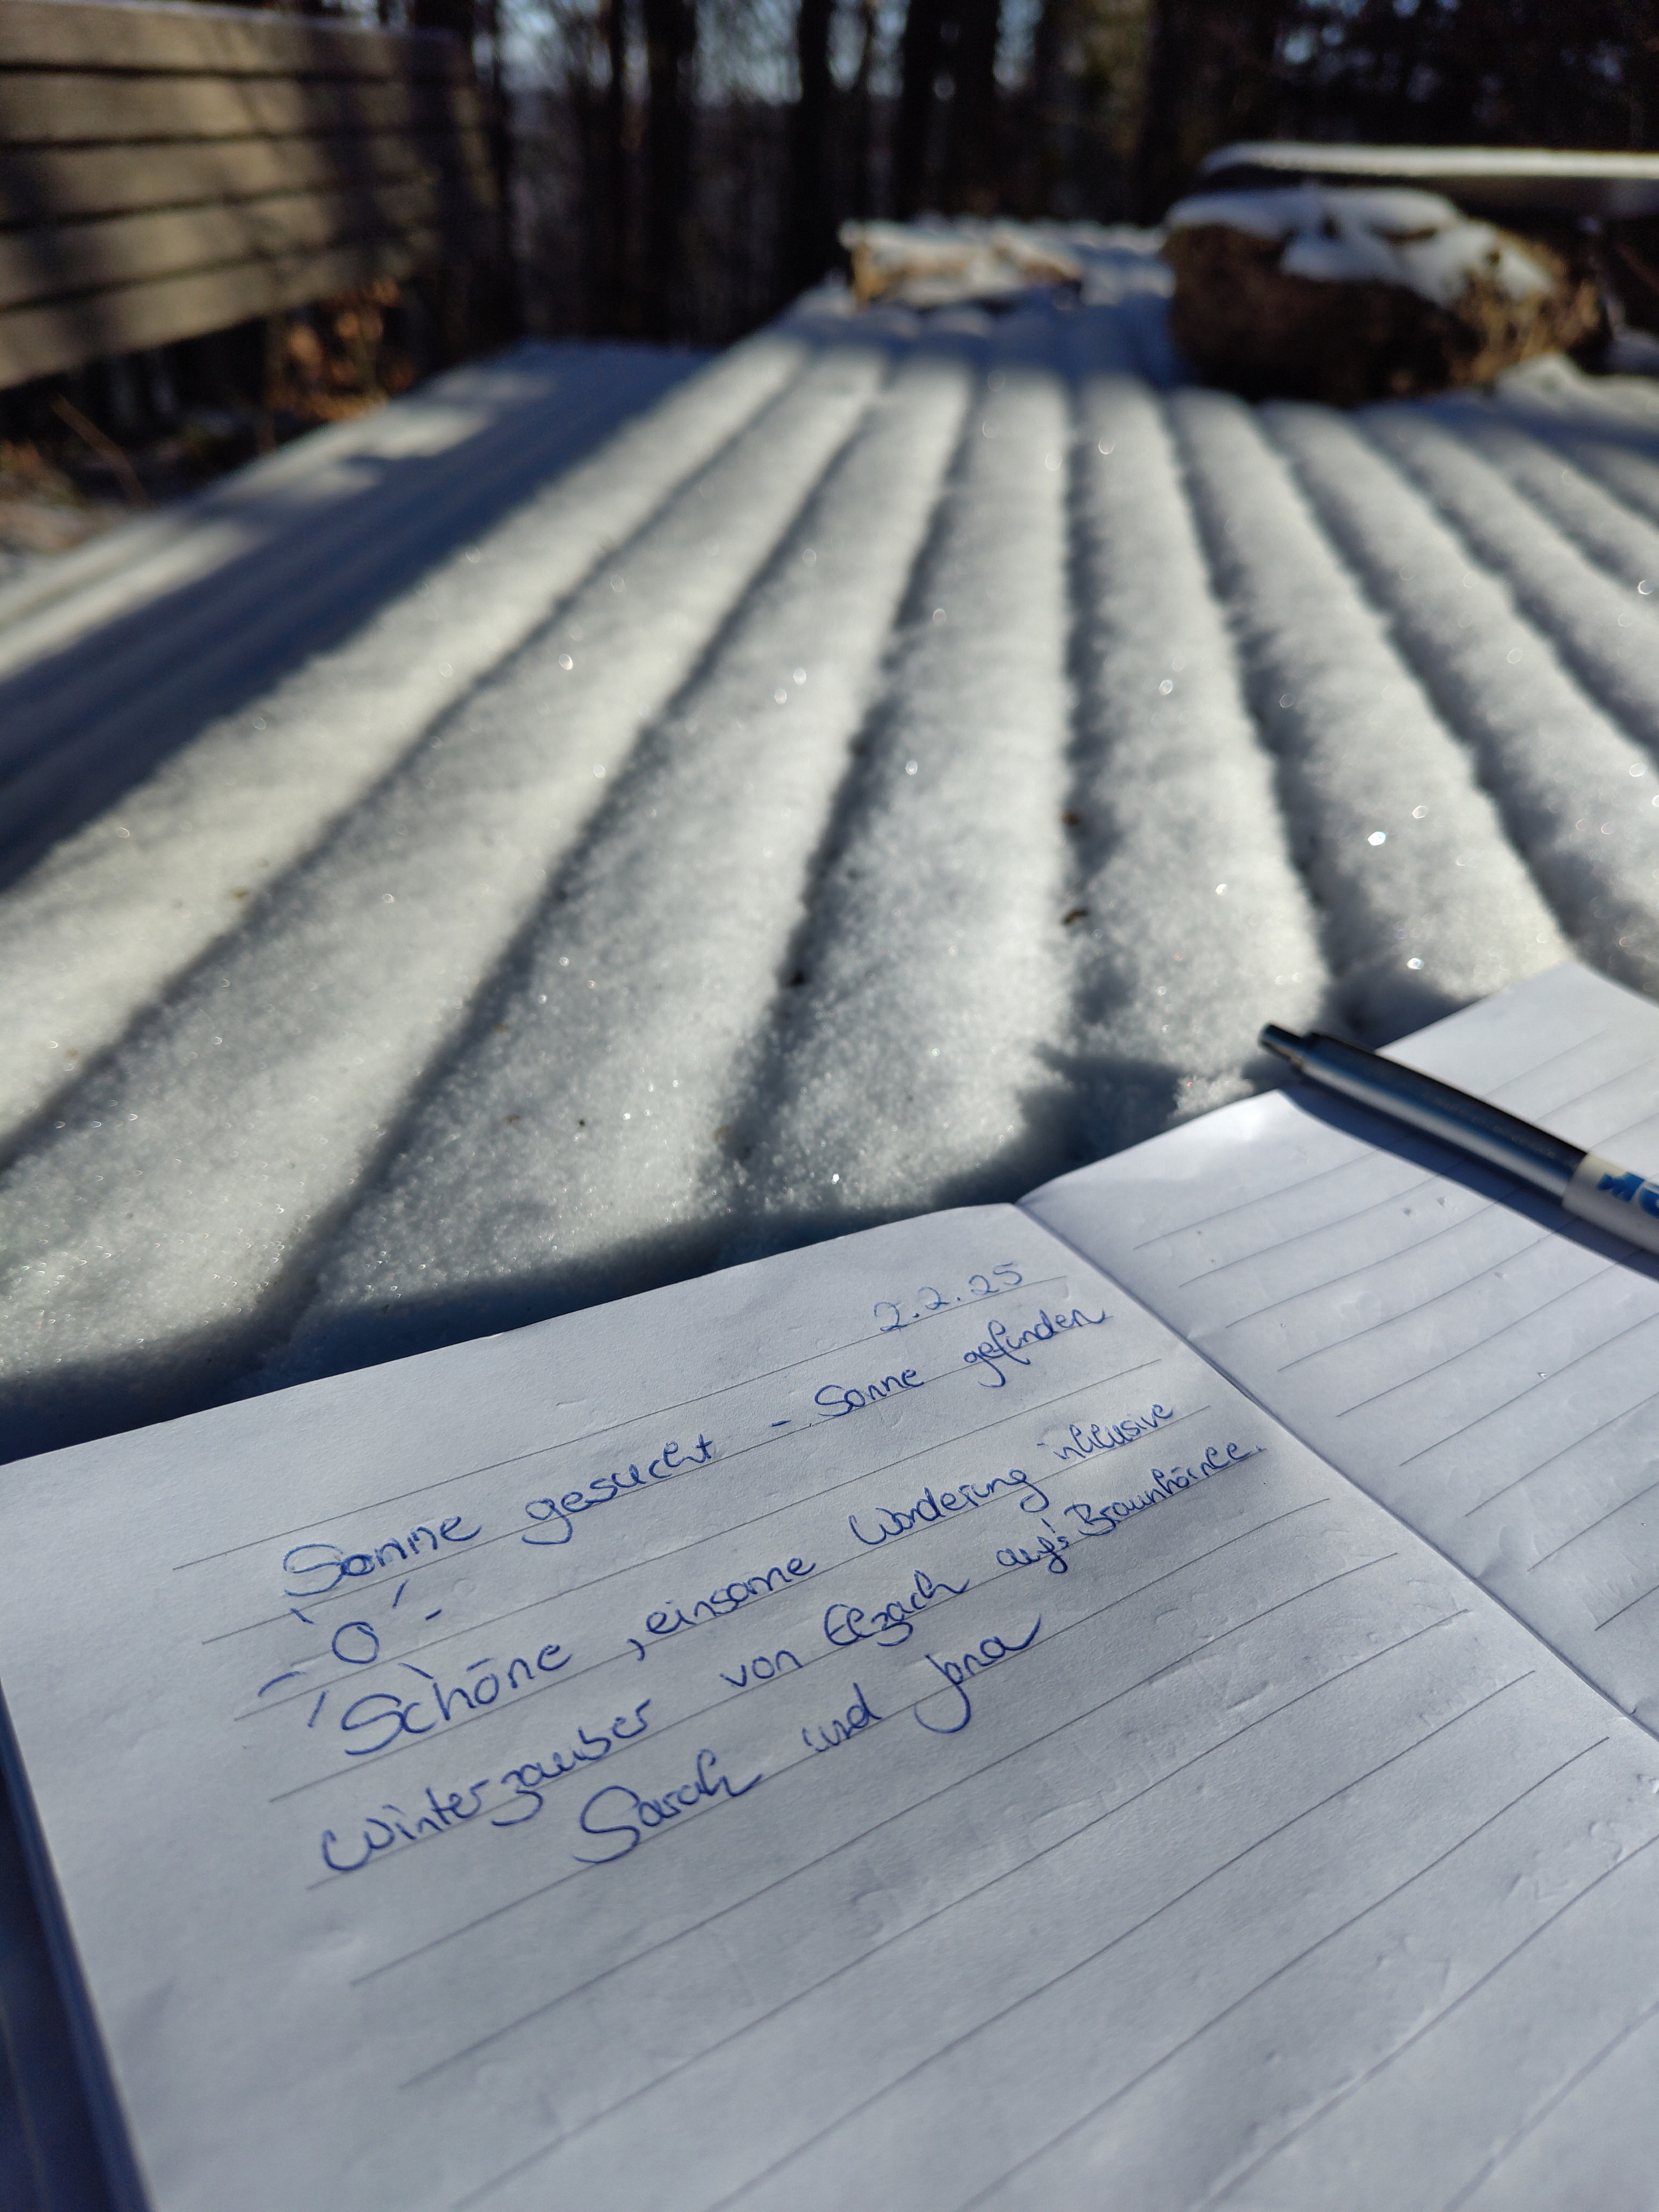 2.2.25
Sonne gesucht - Sonne gefunden
Schöne, einsame Wanderung inklusive
Winterzauber von Elzach auf's Braunhörnle.
Sarah und Jana